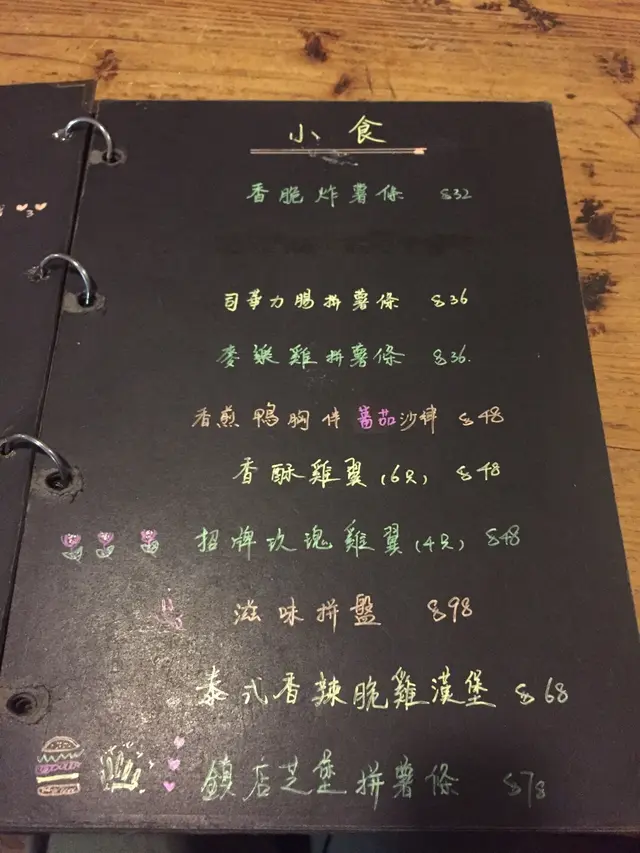 小食
香脆炸薯條 $32
司華力腸拼薯條 $36
麥樂雞拼薯條 $36.
香煎鴨胸伴蕃茄沙律 $48
香酥雞翼(6只) $48
招牌玫瑰雞翼(4只) $48
滋味拼盤 $98
泰式香辣脆雞漢堡 $68
鎮店芝堡拼薯條 $78